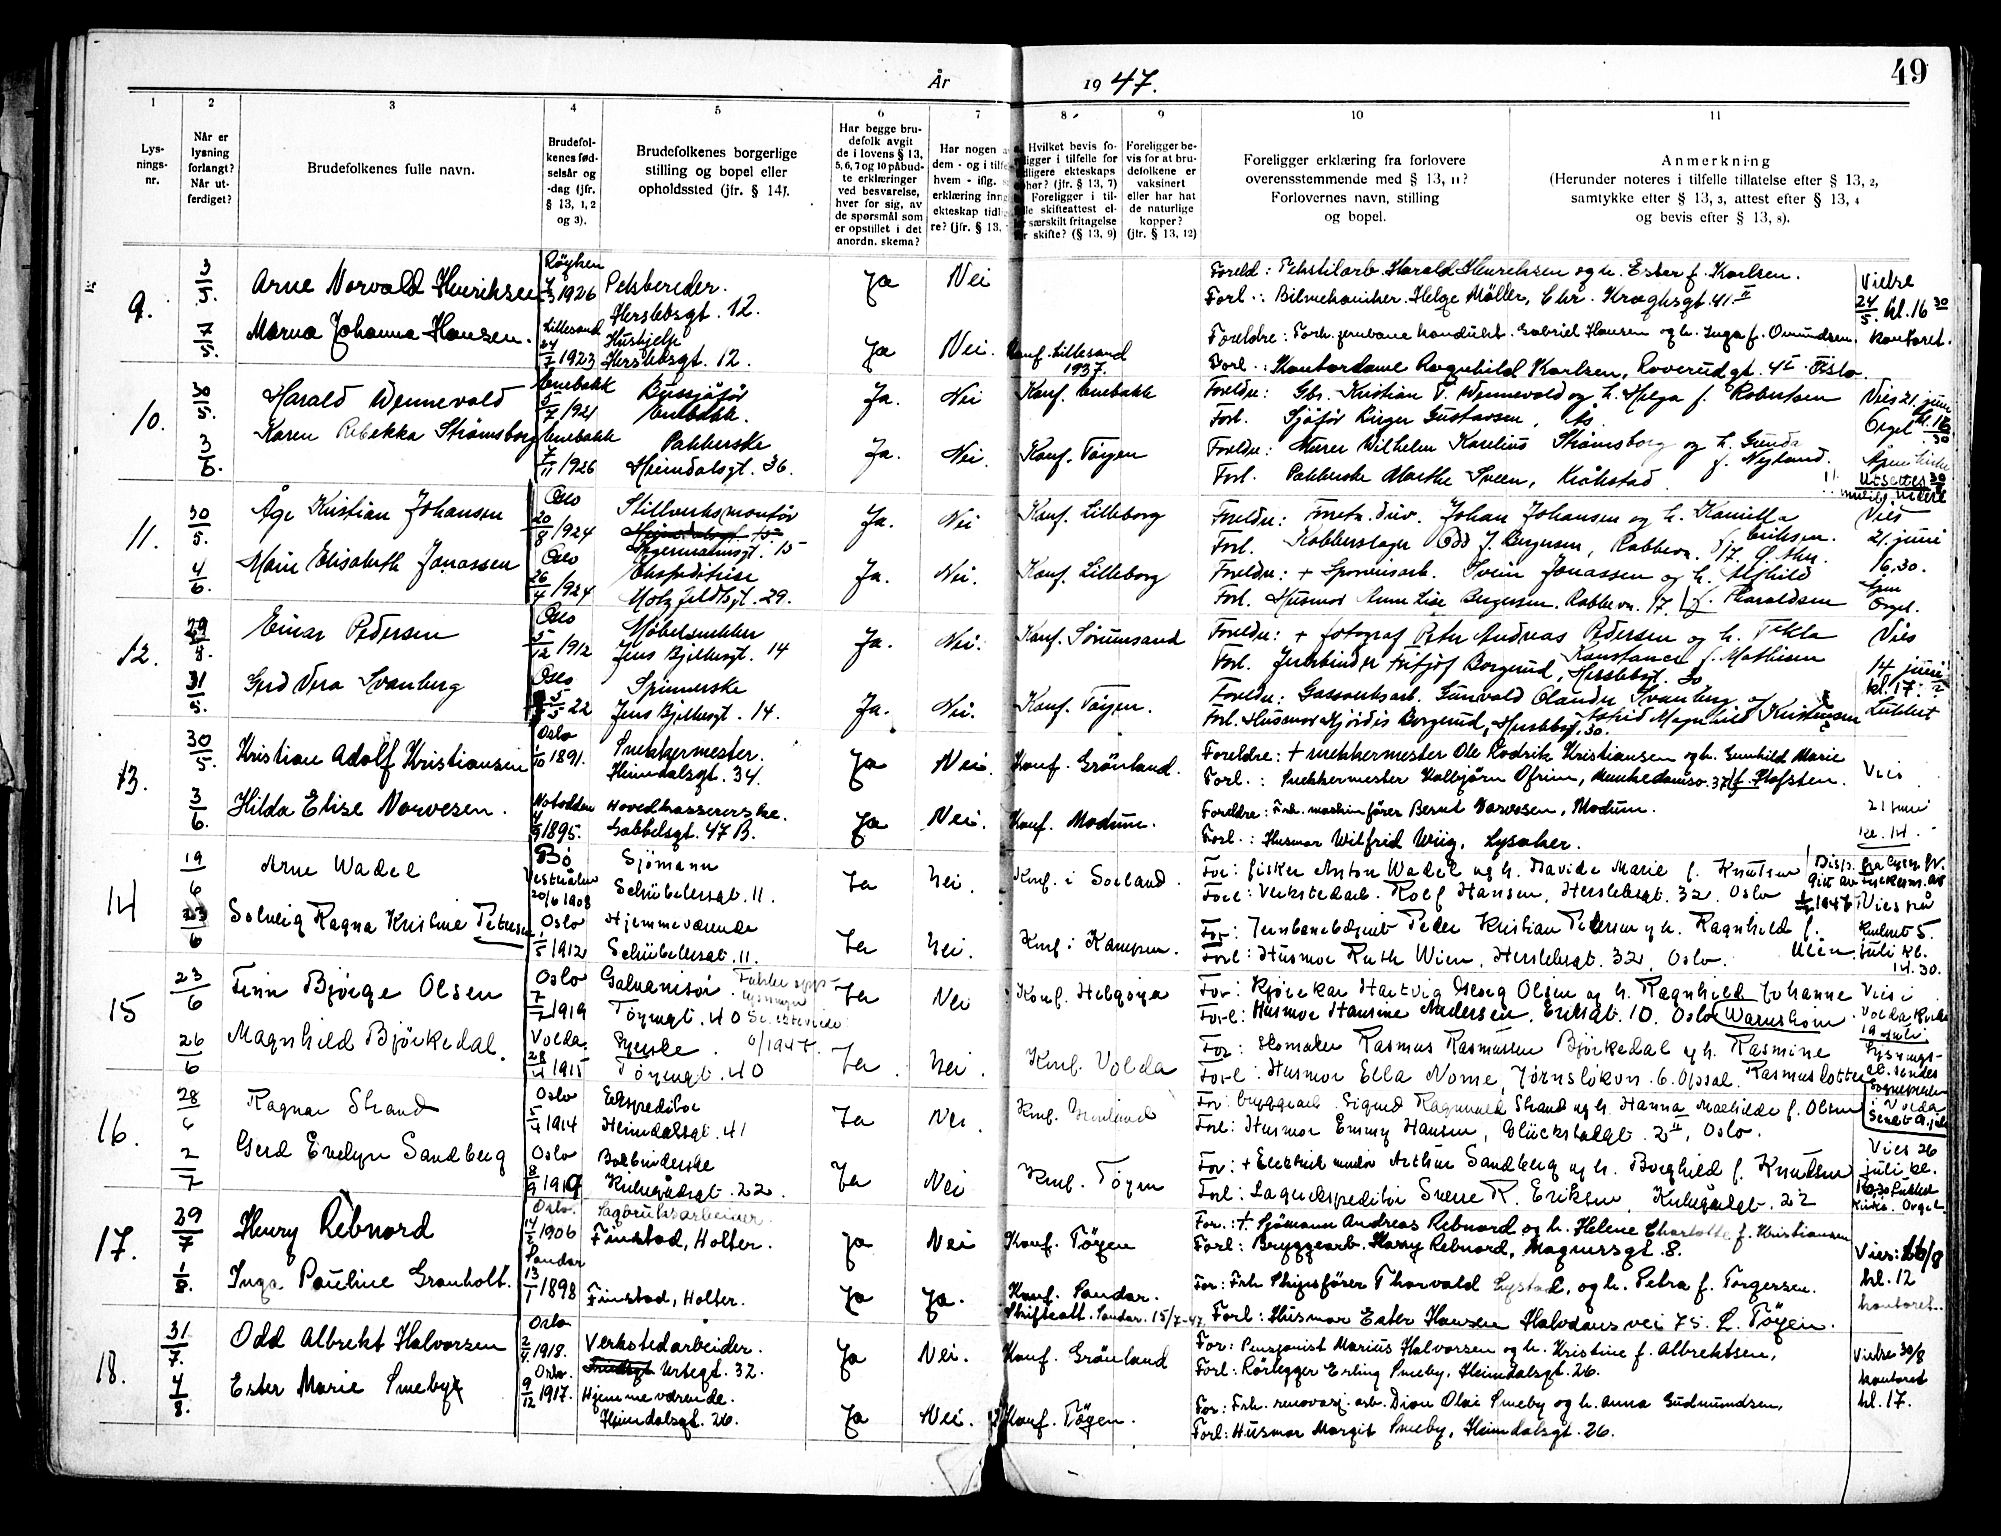 År 1947.
49
1 2 3 4 5 6 7 8 9 10 11
Lys-
nings-
nr.
Når er
lysning
forlangt?
Når ut-
ferdiget?
Brudefolkenes fulle navn.
Brudefol-
kenes fød-
selsår og
-dag (jfr.
§ 13, 1, 2
og 3).
Brudefolkenes borgerlige
stilling og bopel eller
opholdssted (jfr. § 14).
Har begge bru-
defolk avgit
de i lovens § 13,
5, 6, 7 og 10 påbud-
te erklæringer
ved besvarelse,
hver for sig, av
de spørsmål som
er opstillet i det
anordn. skema?
Har nogen a
dem - og i tilfe
hvem - iflg.
erklæring inng
ekteskap tidlig
re? (jfr. § 13,
Hvilket bevis fo-
ligger i tilfelle for
dligere ekteskaps
phør? (jfr. § 13, 7)
Foreligger i til-
lle skifteattest el-
r særskilt fritagelse
r skifte? (§ 13, 9)
Foreligger be-
vis for at bru-
defolkene er
vaksinert
eller har hat
de naturlige
kopper?
(jfr. § 13, 12)
Foreligger erklæring fra forlovere
overensstemmende med § 13, 11?
Forlovernes navn, stilling
og bopel.
Anmerkning
(Herunder noteres i tilfelle tillatelse efter § 13, 2,
samtykke efter § 13, 3, attest efter § 13, 4
og bevis efter § 13, 8).
9. Arne Norvald Henriksen Røyken 1926 Pelsbereder. Ja Nei Foreld: Tekstilarb. Harald Henriksen og h. Ester f. Karlsen. Vielse
Herslebsgt. 12. Forl.: Bilmekaniker Helge Møller, Chr. Kroghsgt. 41 II 24/5. kl. 16 30
7/5. Marna Johanna Hansen. Lillesand 24/7 1923 Hushjelp Ja Nei. Konf. Lillesand Foreldre: Forh. jernbane konduktør Gabriel Hansen og h. Inga f. Omundsen. kontoret.
Herslebsgt. 12. 1937. Forl.: Kontordame Ragnhild Karlsen, Roverudgt. 4 I Oslo
10. Harald Wennevold Enebakk 5/7 1921 Bussjåfør Ja. Nei Konf. Enebakk Foreldre: Gbr. Kristian T. Wennevold og h. Helga f. Robertsen Vies 21. juni
Enebakk. Forl. Sjåfør Birger Gustavsen, Ås Orgel kl. 16 30
3/6. Karen Rebekka Strømsborg Enebakk 7/11 1926 Pakkerske Ja. Nei. Konf. Tøyen Foreldre: Murer Wilhelm Karelius Strømsborg og h. Gunda
Heimdalsgt. 36. f. Nyland.
Forl. Pakkerske Marthe Sveen, Kråkstad Utsettes
11. 30/5. Åge Kristian Johansen Oslo 20/8 1924 Stillverksmontør Ja. Nei Konf. Lilleborg Foreldre: Foretn.driv. Johan Johansen og h. Kamilla Vies
Hegermannsgt. 15 f. Eriksen. 21. juni
Forl. Kobberslager Odd J. Bergersen, Rabbevn. 17 Ø. Aker 16,30.
4/6 Marie Elisabeth Jonassen Oslo 26/4 1924 Ekspeditrise Ja. Nei. Konf. Lilleborg Foreldre: + Sporveisarb. Svein Jonassen og h. Alfhild
Molzfeldtsgt. 29. f. Haraldsen Orgel.
Forl. Husmor Anna Lise Bergersen. Rabbevn. 17.
12. Einar Pedersen Oslo 5/12 1912 Møbelsnekker Ja. Nei. Konf. Sørumsand Foreldre: + fotograf Peter Andreas Pedersen og h. Tekla Vies
Jens Bjelkesgt. 14 Konstance f. Mathisen 14 juni
Forl. Jernbinder Fritjof Borgerud, Herslebsgt. 30 kl. 17.
31/5. Gerd Vera Svanberg Oslo 5/5 22 Spinnerske Ja. Nei. Konf. Tøyen. Foreldre: Gassverksarb. Gunvald Olander Svanberg og Lukket
Jens Bjelkesgt. 14. Astrid Magnhild Kristensen
Forl. Husmor Hjørdis Borgerud, Herslebsgt. 30.
13. 30/5. Kristian Adolf Kristiansen Oslo 1/10 1891. Snekkermester. Ja Nei. Konf. Grønland. Foreldre: + snekkermester Ole Kodrik Kristiansen og h. Gunhild Marie
Heimdalsgt. 34. f. Hofsten. Vies
Forl.: Snekkermester Kolbjørn Ofrim, Munkedamsv. 37
3/6. Hilda Elise Narvesen. Notodden 1895. Hovedkassererske. Ja Nei. Konf. Modum. Foreldre: Frh. maskinfører Bernt Narvesen, Modum. 21 juni
Gabbelsgt. 47 B. Forl.: Husmor Wilfrid Wiig, Lysaker. kl. 14.
14 19/6 Arne Wadel Bø Vesterålen 20/6 1908 Sjømann Ja Nei. Konf. i Sortland. For: fisker Anton Wadel og h. Davida Marie f. Knutsen Disp. fra lysn.fr.
Schübelersgt. 11. Forl: Verkstedarb. Rolf Hansen, Herslebsgt. 32, Oslo 1947 Vies på
23/6 Solveig Ragna Kristine Petersen Oslo 1/5 1912 Hjemmeværende Ja Nei. Konf. i Kampen. For: Jernbanebetjent Peder Kristian Petersen og h. Ragnhild f. Wien. kontoret 5.
Schübelersgt. 11. Forl: Husmor Ruth Wien, Herslebsgt. 32, Oslo. juli kl. 14.30.
15 23/6 Finn Bjørge Olsen Oslo 7/7 1919 Galvanisør Ja Nei Konf. Helgøya For: kjørekar Hartvig Georg Olsen og h. Ragnhild Johanne Vies i
Tøyengt. 40 Forl: Husmor Hansine Andersen, Eriksgt. 10. Oslo Warnsholm. Volda kirke
26/6 Magnhild Bjørkedal. Volda. 28/4 1915 Syerske Ja Nei. Konf. Volda For: Skomaker Rasmus Rasmussen Bjørkedal og h. Rasmine 19 juli.
Tøyengt. 40 Forl: Husmor Ella Nome, Jørnsløkvn. 6. Opsal. Rasmusdotter Lysnings-
at. sendes
Sogneprest
i Volda
Sendt 9. juli
16. 28/6 Ragnar Strand Oslo 5/4 1914 Ekspeditør Ja Nei. For: bryggearb. Sigurd Ragnvald Strand og h. Hanna Mathilde f. Olsen
Heimdalsgt. 41 Forl: Husmor Emmy Hansen, Glückstadgt. 2 II, Oslo.
2/7 Gerd Evelyn Sandberg Oslo 8/9 1919 Bokbinderske Ja Nei Konf. Tøyen For: + Elektrik.montør Arthur Sandberg og h. Borghild f. Knutsen Vies 26
Kirkegårdsgt. 22. Forl: Lagerekspeditør Sverre R. Eriksen, Kirkegårdsgt. 22 juli kl.
16,30 Lukket
kirke. Orgel
17. 29/7 Henry Rebnord Oslo. 1906 Sagbruksarbeider. Ja Nei Konf. Tøyen For.: + Sjømann Andreas Rebnord og h. Helene Charlotte f. Kristiansen
Finstad, Holter. Forl: Bryggearb. Harry Rebnord, Magnusgt. 8. Vies: 16/8
1/8. Inga Pauline Granholt. Sandar 13/1 1898 Finstad, Holter. Ja Ja. Konf. Sandar. For: Frh Skipsfører Thorvald Lystad, og h. Petra f. Torgersen. kl. 12
Skifteatt. Sandar. 15/7-47 Forl: Husmor Ester Hansen Halvdans vei 75. L. Tøyen. kontoret.
18. 31/7. Odd Albrekt Halvorsen Oslo 2/4 1918. Verkstedarbeider. Ja Nei. Konf. Grønland For: Pensjonist Marius Halvorsen og h. Kristine f. Albrektsen, Vielse 30/8
Urtegt. 32. Forl: Rørlegger Erling Smeby, Heimdalsgt. 26. kontoret
4/8. Ester Marie Smeby Oslo. 9/12 1917. Hjemmeværende. Ja Nei. Konf. Tøyen. For: Frh. renovasj. arb. Dion Olai Smeby og h. Anna Gudmundsen, kl. 17.
Heimdalsgt. 26. Forl: Husmor Margit Smeby, Heimdalsgt. 26.